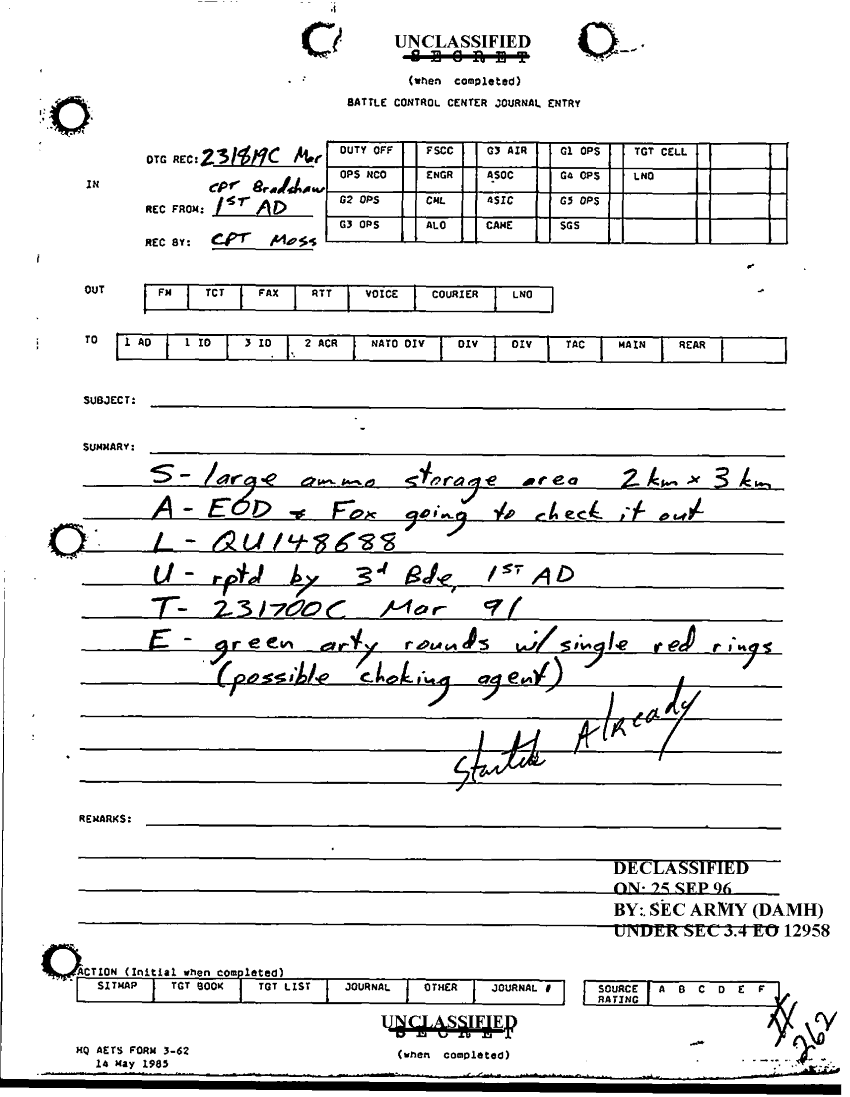 UNCLASSIFIED
SECRET
(when completed)
BATTLE CONTROL CENTER JOURNAL ENTRY
DTG REC: 231819C Mar
IN
CPT Bradshaw
REC FROM: 1ST AD
REC BY: CPT Moss
DUTY OFF FSCC G3 AIR G1 OPS TGT CELL
OPS NCO ENGR ASOC G4 OPS LNO
G2 OPS CML ASIC G5 OPS
G3 OPS ALO CAME SGS
OUT FM TCT FAX RTT VOICE COURIER LNO
TO 1 AD 1 ID 3 ID 2 ACR NATO DIV DIV DIV TAC MAIN REAR
SUBJECT:
SUMMARY:
S - large ammo storage area 2 km x 3 km
A - EOD & Fox going to check it out
L - QU148688
U - rptd by 3d Bde, 1ST AD
T - 231700C Mar 91
E - green arty rounds w/ single red rings
(possible choking agent)
Already
REMARKS:
DECLASSIFIED
ON: 25 SEP 96
BY: SEC ARMY (DAMH)
UNDER SEC 3.4 EO 12958
ACTION (Initial when completed)
SITMAP TGT BOOK TGT LIST JOURNAL OTHER JOURNAL # SOURCE RATING A B C D E F
UNCLASSIFIED
SECRET
(when completed)
# 262
HQ AETS FORM 3-62
14 May 1985